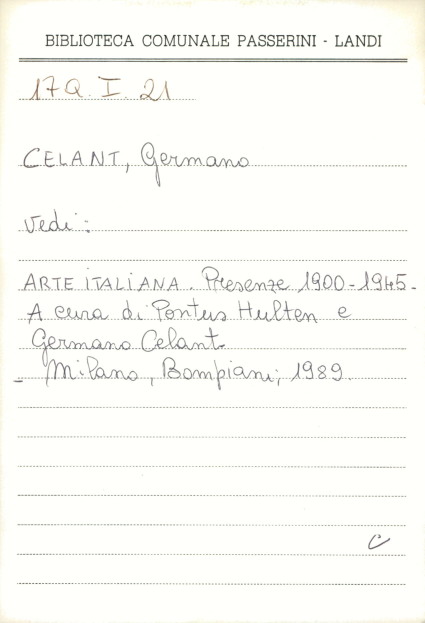 BIBLIOTECA COMUNALE PASSERINI - LANDI
17Q. I. 21
CELANT, Germano
Vedi:
ARTE ITALIANA. Presenze 1900-1945.
A cura di Pontus Hulten e
Germano Celant.
_ Milano, Bompiani, 1989.
C